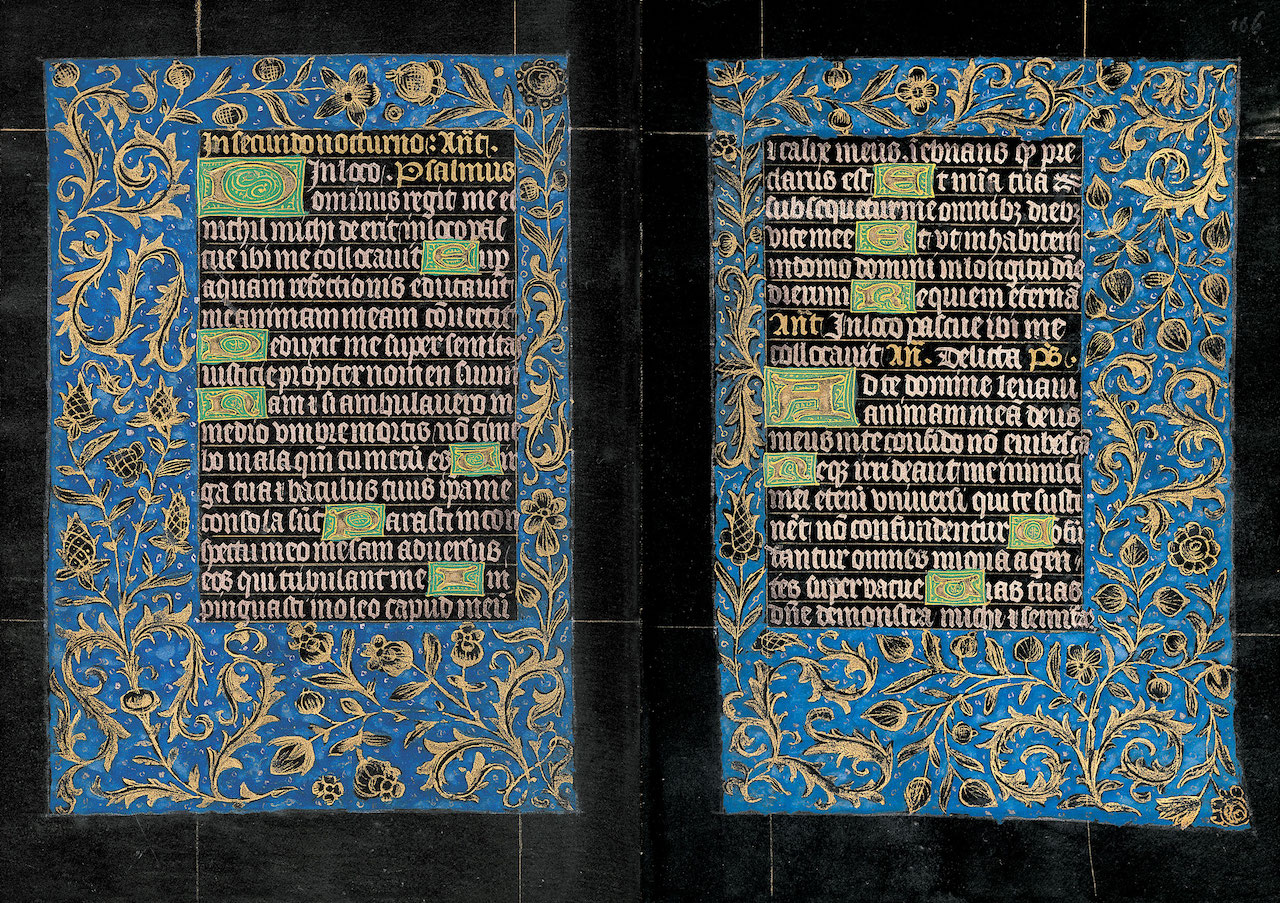 In secundo nocturno: Añt.
In loco. Psalmus
Dominus regit me et
nichil michi deerit in loco pas
cue ibi me collocauit Sup
aquam refectionis educauit
me animam meam cōuertit
Deduxit me super semita
iusticie propter nomen suum
Nam & si ambulauero in
medio vmbre mortis nō tim
bo mala qm̄ tu mecū es Vir
ga tua & baculus tuus ipa me
consola sūt Parasti in con
spectu meo mesam aduersus
eos qui tribulant me In
pinguasti in oleo capud meū
186
& calix meus inebrians qp pre
clarus est Et mīa tua
subsequetur me omnibꝫ diebꝫ
vite mee Et vt inhabitem
in domo domini in longitudīe
dierum Requiem eternā
Añt In loco pascue ibi me
collocauit Añ. Delicta ps̄.
Ad te domine leuaui
animam meā deus
meus in te confido nō erubescā
Neqꝫ irrideant me inimici
mei etenī vniuersi qui te susti
nēt nō confundentur Confū
dantur omnes iniqua agen
tes superuacue Uias tuas
dn̄e demonstra michi & semitas